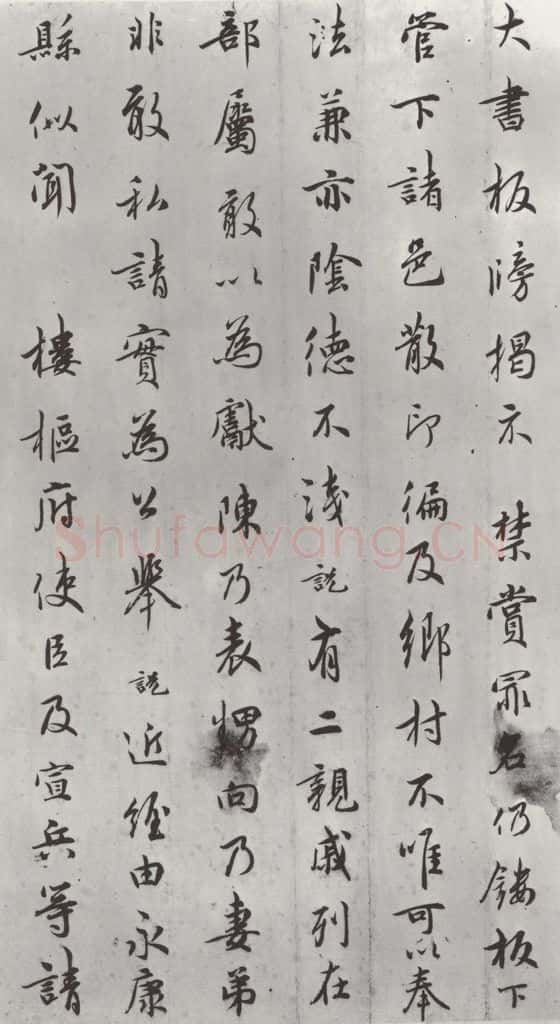 大書板牓揭示 禁賞罪名仍鏤板下
管下諸邑散印徧及鄉村不唯可以奉
法兼亦陰德不淺説有二親戚列在
部屬敢以為獻陳乃表甥向乃妻弟
非敢私請實為公舉説近經由永康
縣似聞 樓樞府使臣及宣兵等請
Shufawang.CN